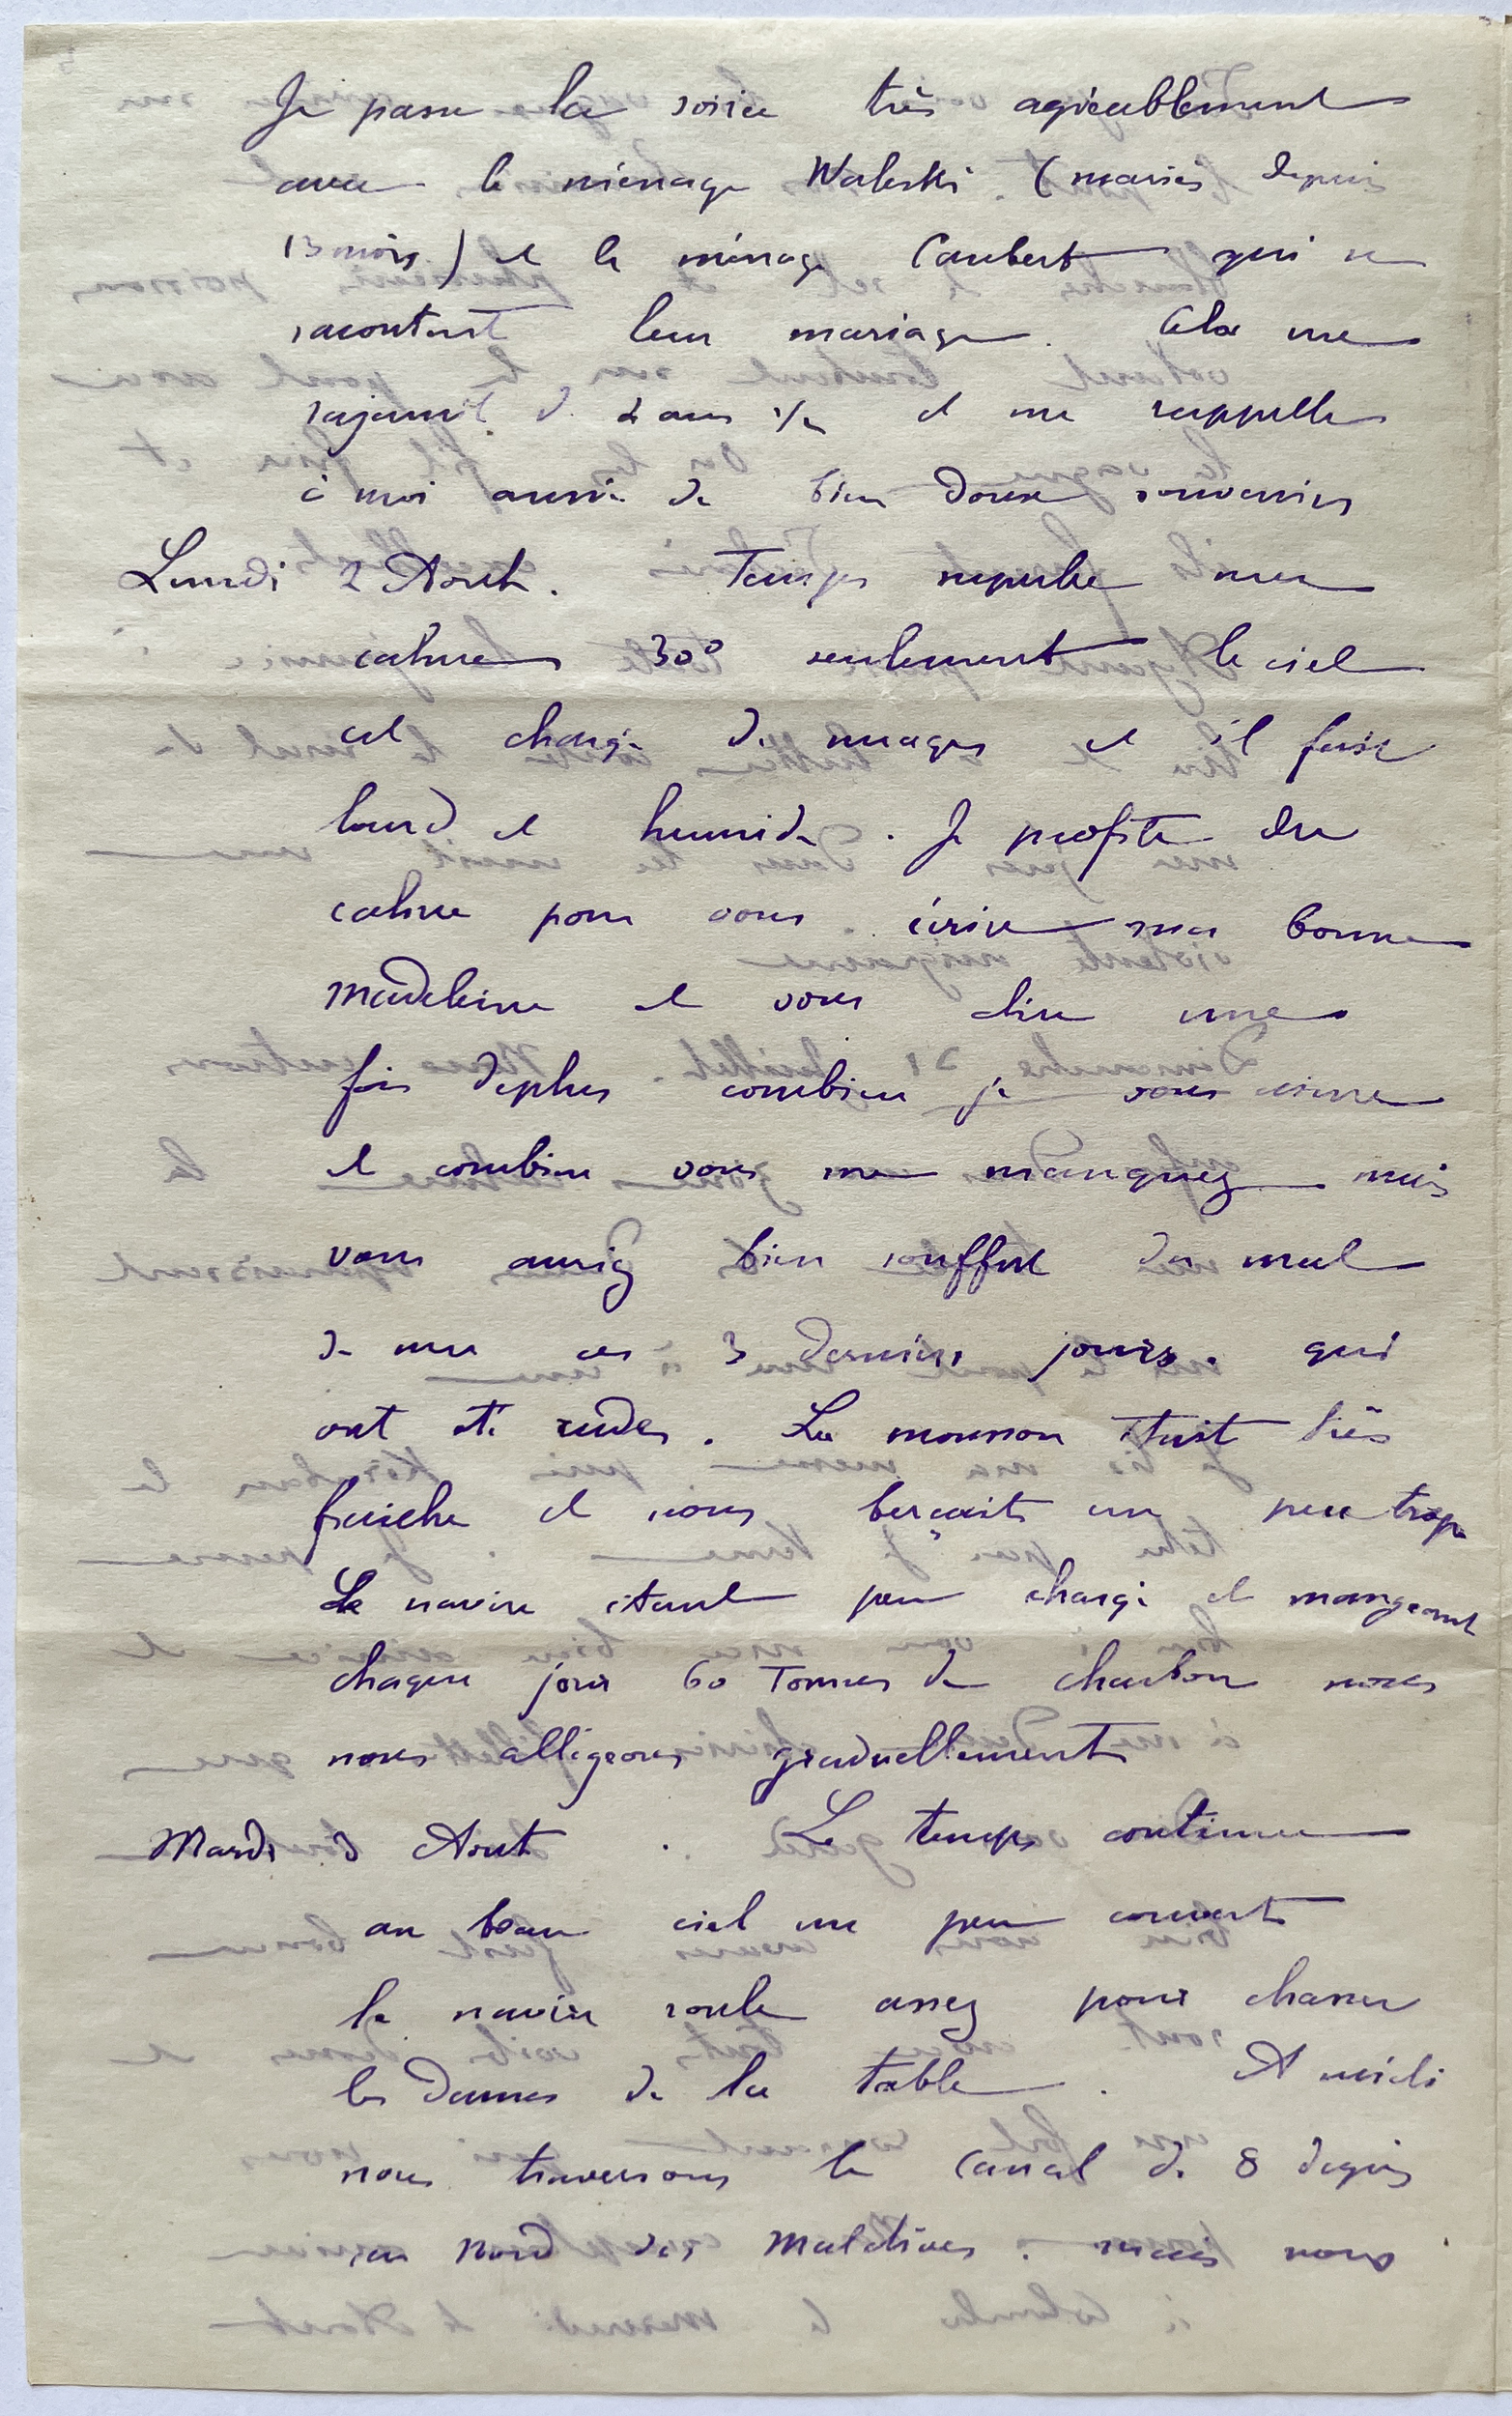 Je passe la soirée très agréablement
avec le ménage Waleski (mariés depuis
13 mois) et le ménage Caubert qui se
racontent leur mariage. Cela me
rajeunit de 2 ans 1/2 et me rappelle
à moi aussi de bien doux souvenirs
Lundi 2 Aout. Temps superbe mer
calme 30° seulement le ciel
est chargé de nuages et il fait
lourd et humide. Je profite du
calme pour vous écrire ma bonne
Madeleine et vous dire une
fois deplus combien je vous aime
et combien vous me manquez mais
vous auriez bien souffert du mal
de mer ces 3 derniers jours. qui
ont été rudes. La mousson était très
fraiche et nous berçait un peu trop
Le navire étant peu chargé et mangeant
chaque jour 60 Tonnes de charbon nous
nous allégeons graduellement
Mardi 3 Aout. Le temps continue
au beau ciel un peu couvert
le navire roule assez pour chasser
les Dames de la table. A midi
nous traversons le Canal de 8 degrés
au Nord des Maldives. mais nous